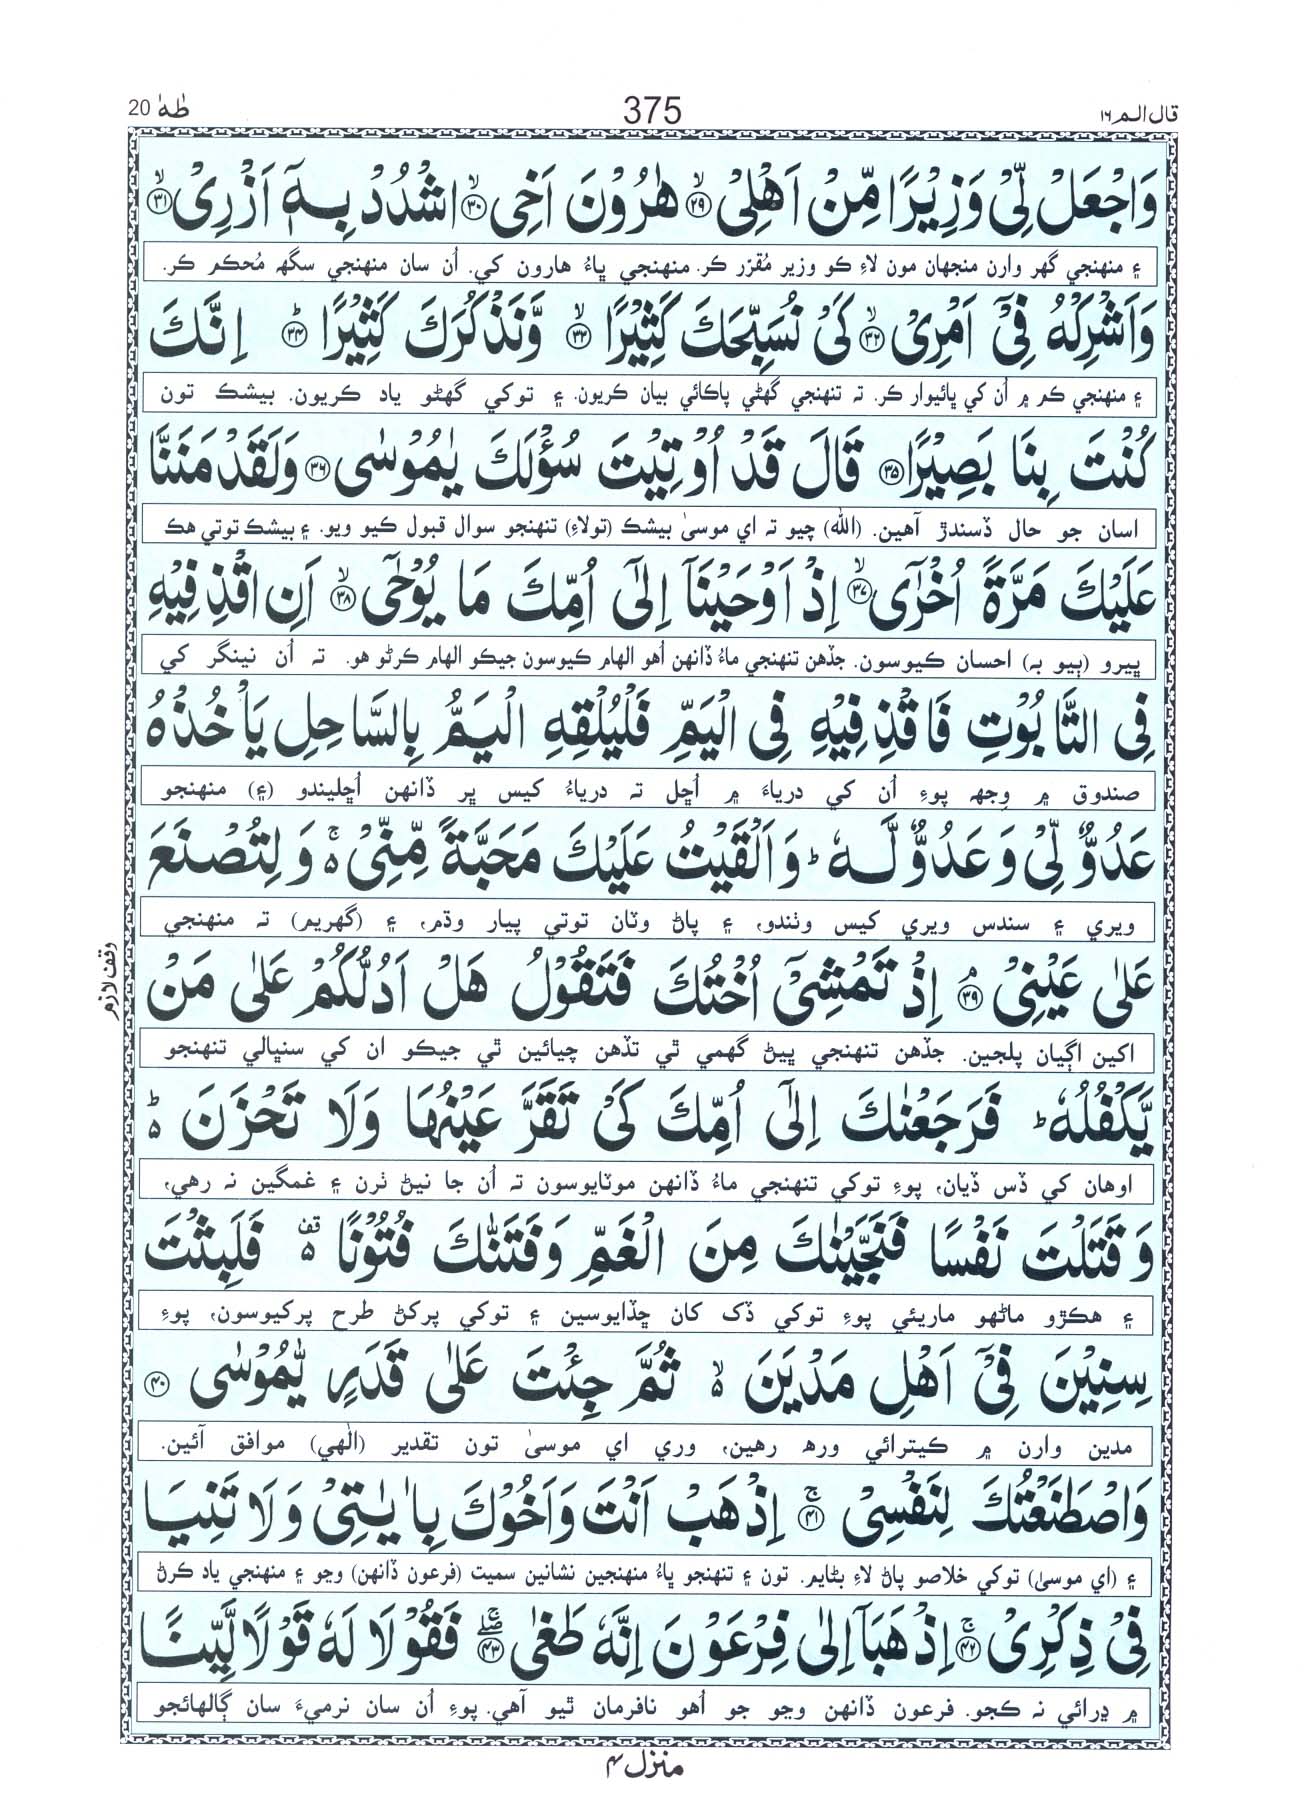 طٰهٰ 20
375
قال الم ١٦
وَاجْعَلْ لِّیْ وَزِیْرًا مِّنْ اَهْلِیْ ۙ﴿۲۹﴾ هٰرُوْنَ اَخِی ۙ﴿۳۰﴾ اشْدُدْ بِهٖۤ اَزْرِیْ ۙ﴿۳۱﴾
۽ منهنجي گهر وارن منجهان مون لاءِ ڪو وزير مُقرّر ڪر. منهنجي ڀاءُ هارون کي. اُن سان منهنجي سگهہ مُحڪم ڪر.
وَاَشْرِكْهُ فِیْۤ اَمْرِیْ ۙ﴿۳۲﴾ كَیْ نُسَبِّحَكَ كَثِیْرًا ۙ﴿۳۳﴾ وَّنَذْكُرَكَ كَثِیْرًا ؕ﴿۳۴﴾ اِنَّكَ
۽ منهنجي ڪم ۾ اُن کي ڀائيوار ڪر. تہ تنهنجي گهڻي پاڪائي بيان ڪريون. ۽ توکي گهڻو ياد ڪريون. بيشڪ تون
كُنْتَ بِنَا بَصِیْرًا ﴿۳۵﴾ قَالَ قَدْ اُوْتِیْتَ سُؤْلَكَ یٰمُوْسٰی ﴿۳۶﴾ وَلَقَدْ مَنَنَّا
اسان جو حال ڏسندڙ آهين. (الله) چيو تہ اي موسىٰ بيشڪ (تولاءِ) تنهنجو سوال قبول ڪيو ويو. ۽ بيشڪ توتي هڪ
عَلَیْكَ مَرَّةً اُخْرٰۤی ۙ﴿۳۷﴾ اِذْ اَوْحَیْنَاۤ اِلٰۤی اُمِّكَ مَا یُوْحٰۤی ۙ﴿۳۸﴾ اَنِ اقْذِفِیْهِ
ڀيرو (ٻيو بہ) احسان ڪيوسون. جڏهن تنهنجي ماءُ ڏانهن اُهو الهام ڪيوسون جيڪو الهام ڪرڻو هو. تہ اُن نينگر کي
فِی التَّابُوْتِ فَاقْذِفِیْهِ فِی الْیَمِّ فَلْیُلْقِهِ الْیَمُّ بِالسَّاحِلِ یَاْخُذْهُ
صندوق ۾ وِجهہ پوءِ اُن کي درياءَ ۾ اُڇل تہ درياءُ کيس ڀر ڏانهن اُڇليندو (۽) منهنجو
عَدُوٌّ لِّیْ وَعَدُوٌّ لَّهٗ ؕ وَاَلْقَیْتُ عَلَیْكَ مَحَبَّةً مِّنِّیْ ۬ۚ وَلِتُصْنَعَ
ويري ۽ سندس ويري کيس وٺندو، ۽ پاڻ وٽان توتي پيار وڌم، ۽ (گهريم) تہ منهنجي
عَلٰی عَیْنِیْ ۘ﴿۳۹﴾ اِذْ تَمْشِیْۤ اُخْتُكَ فَتَقُوْلُ هَلْ اَدُلُّكُمْ عَلٰی مَنْ
وقف لازم
اکين اڳيان پلجين. جڏهن تنهنجي ڀيڻ گهمي ٿي تڏهن چيائين ٿي جيڪو ان کي سنڀالي تنهنجو
یَّكْفُلُهٗ ؕ فَرَجَعْنٰكَ اِلٰۤی اُمِّكَ كَیْ تَقَرَّ عَیْنُهَا وَلَا تَحْزَنَ ۬ؕ
اوهان کي ڏس ڏيان، پوءِ توکي تنهنجي ماءُ ڏانهن موٽايوسون تہ اُن جا نيڻ ٺرن ۽ غمگين نہ رهي،
وَقَتَلْتَ نَفْسًا فَنَجَّیْنٰكَ مِنَ الْغَمِّ وَفَتَنّٰكَ فُتُوْنًا ۬۫ فَلَبِثْتَ
۽ هڪڙو ماڻهو ماريئي پوءِ توکي ڏک کان ڇڏايوسين ۽ توکي پرکڻ طرح پرکيوسون، پوءِ
سِنِیْنَ فِیْۤ اَهْلِ مَدْیَنَ ۬ۙ ثُمَّ جِئْتَ عَلٰی قَدَرٍ یّٰمُوْسٰی ﴿۴۰﴾
مدين وارن ۾ ڪيترائي ورهہ رهين، وري اي موسىٰ تون تقدير (الٰهي) موافق آئين.
وَاصْطَنَعْتُكَ لِنَفْسِیْ ۚ﴿۴۱﴾ اِذْهَبْ اَنْتَ وَاَخُوْكَ بِاٰیٰتِیْ وَلَا تَنِیَا
۽ (اي موسىٰ) توکي خلاصو پاڻ لاءِ بڻايم. تون ۽ تنهنجو ڀاءُ منهنجين نشانين سميت (فرعون ڏانهن) وڃو ۽ منهنجي ياد ڪرڻ
فِیْ ذِكْرِیْ ۚ﴿۴۲﴾ اِذْهَبَاۤ اِلٰی فِرْعَوْنَ اِنَّهٗ طَغٰی ۚۖ﴿۴۳﴾ فَقُوْلَا لَهٗ قَوْلًا لَّیِّنًا
۾ ڍرائي نہ ڪجو. فرعون ڏانهن وڃو جو اُهو نافرمان ٿيو آهي. پوءِ اُن سان نرميءَ سان ڳالهائجو
منزل ۴